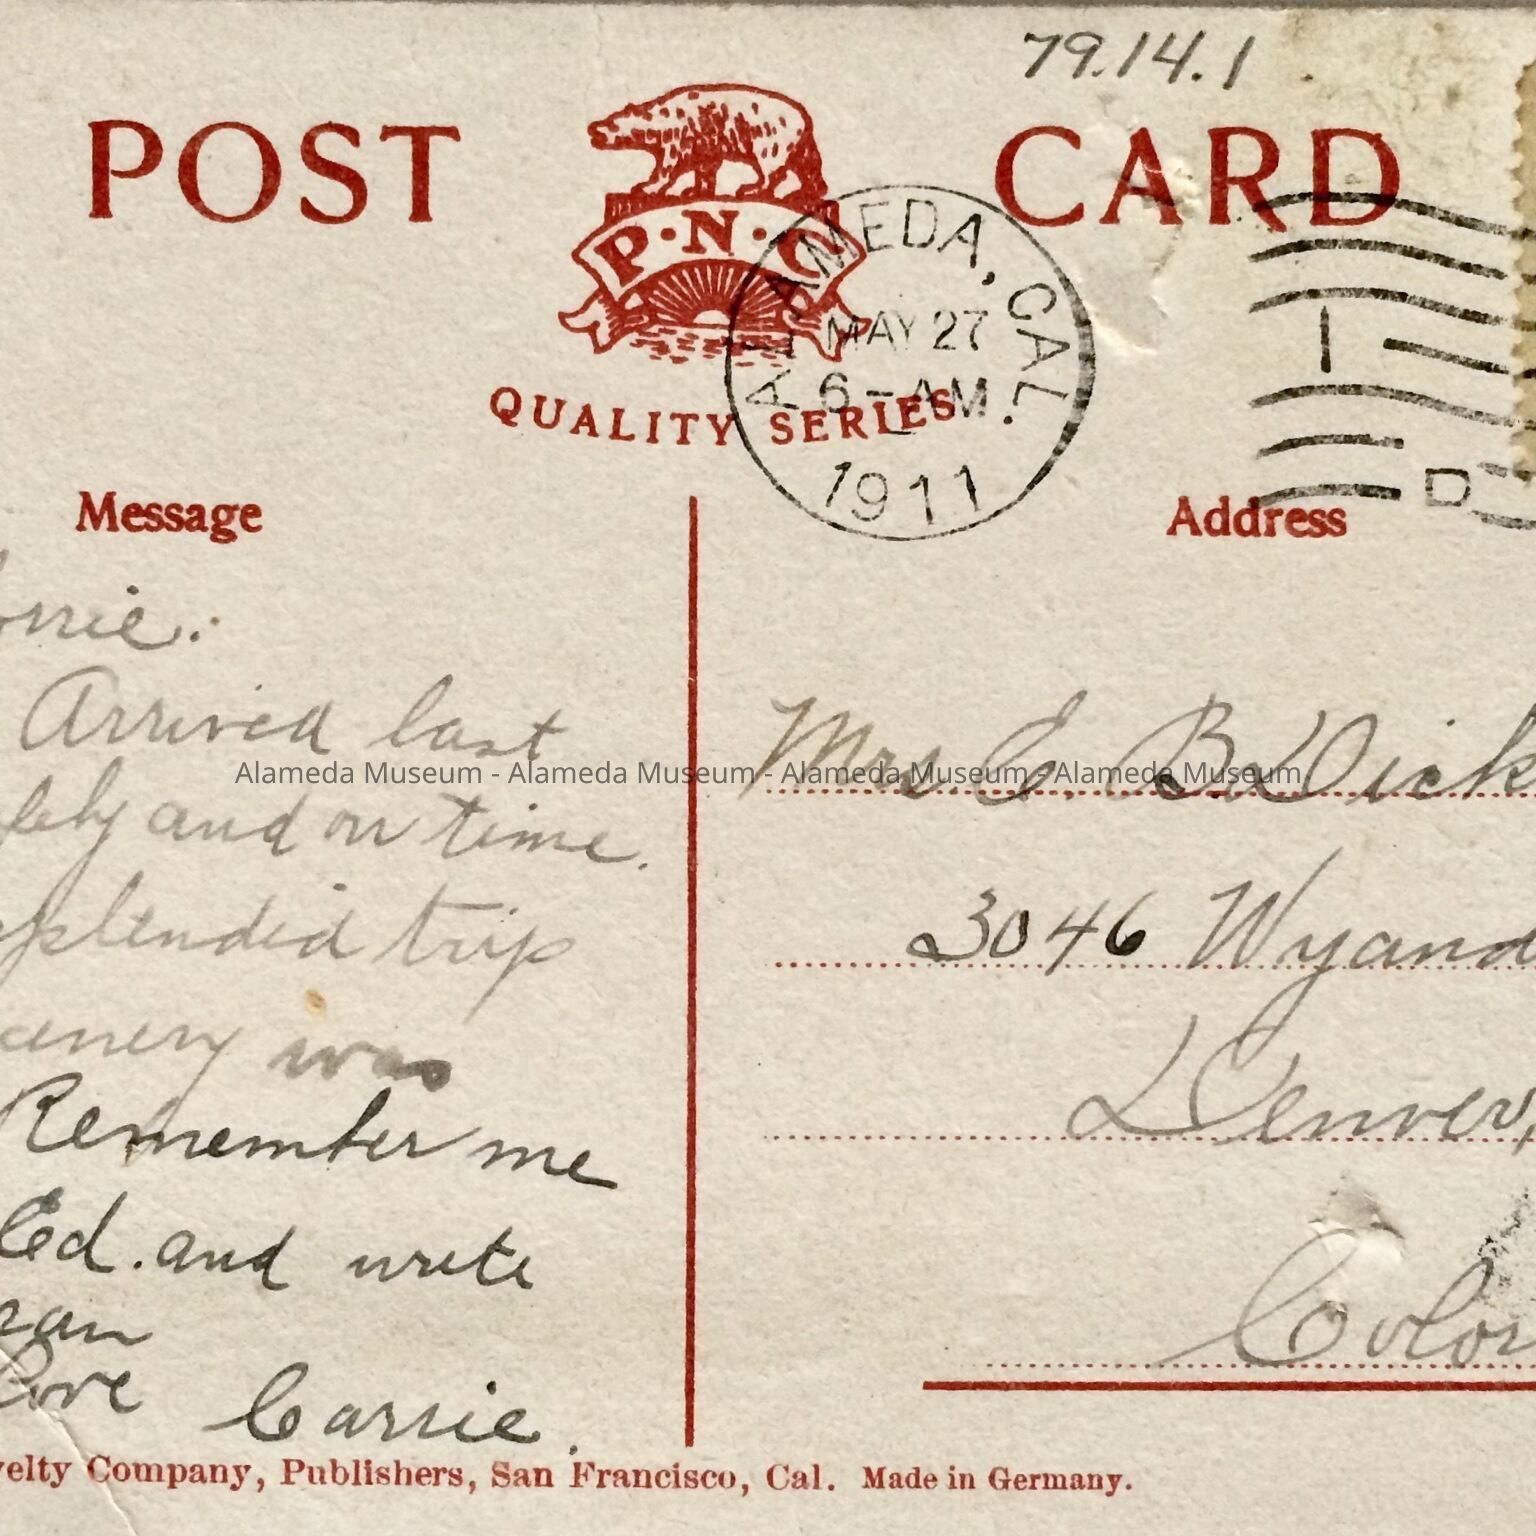 79.14.1
POST CARD
P·N·C
QUALITY SERIES
ALAMEDA, CAL.
MAY 27
6-AM
1911
Message
Address
Arrived last
and on time.
splendid trip
was
Remember me
Ed. and write
Love
Carrie.
Mrs E. B. Dick
3046 Wyand
Denver,
Color
Alameda Museum - Alameda Museum - Alameda Museum - Alameda Museum
velty Company, Publishers, San Francisco, Cal. Made in Germany.